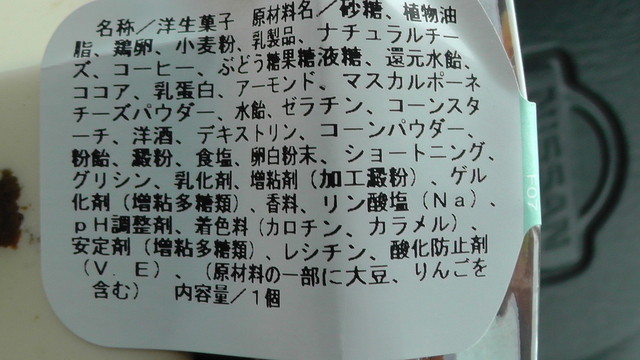 名称／洋生菓子 原材料名／砂糖、植物油
脂、鶏卵、小麦粉、乳製品、ナチュラルチー
ズ、コーヒー、ぶどう糖果糖液糖、還元水飴、
ココア、乳蛋白、アーモンド、マスカルポーネ
チーズパウダー、水飴、ゼラチン、コーンスタ
ーチ、洋酒、デキストリン、コーンパウダー、
粉飴、澱粉、食塩、卵白粉末、ショートニング、
グリシン、乳化剤、増粘剤（加工澱粉）、ゲル
化剤（増粘多糖類）、香料、リン酸塩（Ｎａ）、
ｐＨ調整剤、着色料（カロチン、カラメル）、
安定剤（増粘多糖類）、レシチン、酸化防止剤
（Ｖ．Ｅ）、（原材料の一部に大豆、りんごを
含む） 内容量／１個
F07
NISSAN